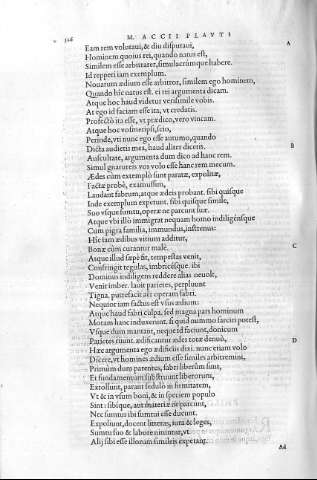 326 M. ACCII PLAVTI
Eam rem volutaui, & diu disputaui, A
Hominem quoius rei, quando natus est,
Similem esse arbitrarer, simulacrumque habere.
Id repperi iam exemplum.
Nouarum ædium esse arbitror, similem ego hominem,
Quando hic natus est. ei rei argumenta dicam.
Atque hoc haud videtur verisimile vobis.
At ego id faciam esse ita, vt credatis.
Profectò ita esse, vt prædico, vero vincam.
Atque hoc vosmetipsi, scio,
Perinde, vti nunc ego esse autumo, quando
Dicta audietis mea, haud aliter dicetis. B
Auscultate, argumenta dum dico ad hanc rem.
Simul gnarureis vos volo esse hanc rem mecum.
Ædes cùm extemplò sunt paratæ, expolitæ,
Factæ probè, examussim,
Laudant fabrum, atque ædeis probant. sibi quisque
Inde exemplum expetunt. sibi quisque simile,
Suo vsque sumtu, operæ ne parcunt suæ.
Atque vbi illò immigrat nequam homo indiligénsque
Cum pigra familia, immundus, instrenuus:
Hîc iam ædibus vitium additur,
Bonæ cùm curantur malè. C
Atque illud sæpè fit, tempestas venit,
Confringit tegulas, imbricésque. ibi
Dominus indiligens reddere alias neuolt,
Venit imber. lauit parietes, perpluunt
Tigna, putrefacit aër operam fabri.
Nequior iam factus est vsus ædium:
Atque haud fabri culpa. sed magna pars hominum
Moram hanc induxerunt. si quid nummo sarciri potest,
Vsque dum mantant, neque id faciunt, donicum
Parietes ruunt. ædificantur ædes totæ denuò, D
Hæc argumenta ego ædificiis dixi. nunc etiam volo
Dicere, vt homines ædium esse similes arbitremini.
Primum dum parentes, fabri liberûm sunt,
Et fundamentum substruunt liberorum,
Extollunt, parant sedulò in firmitatem,
Vt & in vsum boni, & in speciem populo
Sint: sibíque, aut materiæ ne parcunt,
Nec sumtus ibi sumtui esse ducunt.
Expoliunt, docent litteras, iura & leges,
Sumtu suo & labore nituntur, vt
Alij sibi esse illorum simileis expetant.
Ad